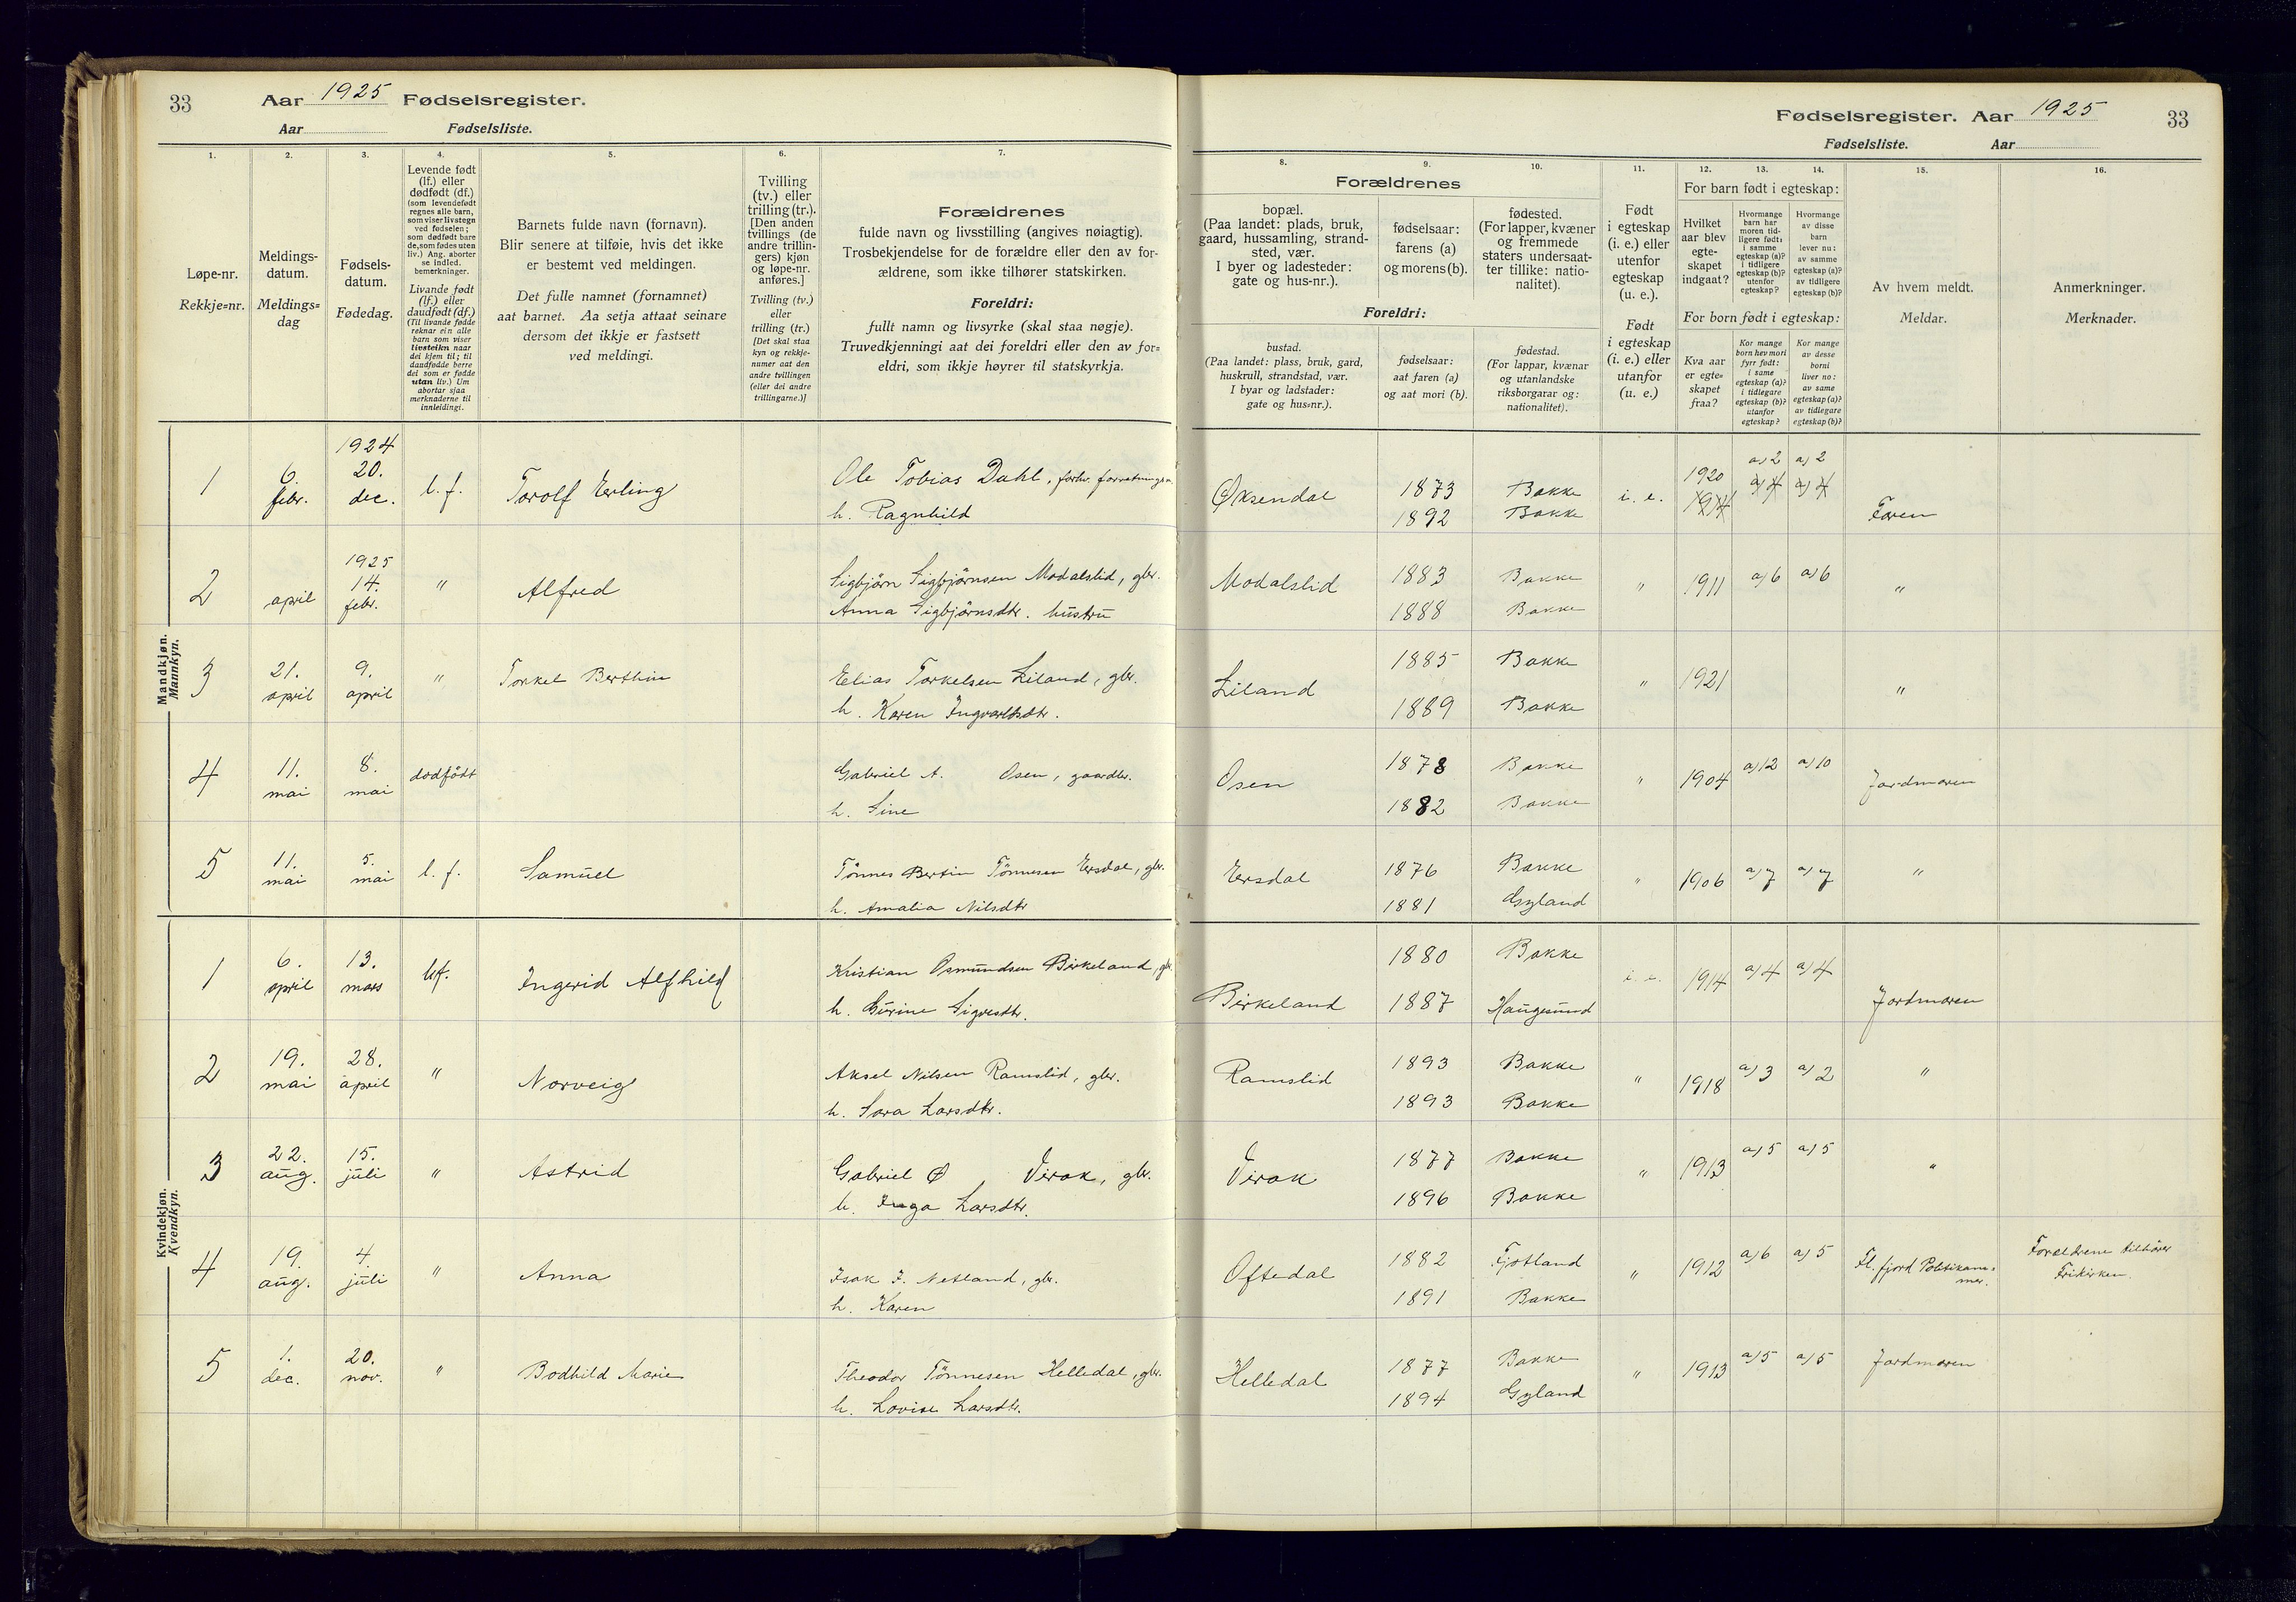 33 Aar 1925 Fødselsregister.
Aar Fødselsliste.
1.
2.
3.
4.
5.
6.
7.
Løpe-nr.
Rekkje=nr.
Meldings-
datum.
Meldings=
dag
Fødsels-
datum.
Fødedag.
Levende født
(lf.) eller
dødfødt (df.)
(som levendefødt
regnes alle barn,
som viser livstegn
ved fødselen;
som dødfødt bare
de, som fødes uten
liv.) Ang. aborter
se indled.
bemerkninger.
Livande født
(lf.) eller
daudfødt (df.)
(Til livande fødde
reknar ein alle
barn som viser
livsteikn naar
dei kjem til; til
daudfødde berre
dei som er fødde
utan liv.) Um
abortar sjaa
merknaderne til
innleidingi.
Barnets fulde navn (fornavn).
Blir senere at tilføie, hvis det ikke
er bestemt ved meldingen.
Det fulle namnet (fornamnet)
aat barnet. Aa setja attaat seinare
dersom det ikkje er fastsett
ved meldingi.
Tvilling
(tv.) eller
trilling (tr.).
[Den anden
tvillings (de
andre trillin-
gers) kjøn
og løpe-nr.
anføres.]
Tvilling (tv.)
eller
trilling (tr.)
[Det skal staa
kyn og rekkje-
numer aat den
andre tvillingen
(eller dei andre
trillingarne.)]
Forældrenes
fulde navn og livsstilling (angives nøiagtig).
Trosbekjendelse for de forældre eller den av for-
ældrene, som ikke tilhører statskirken.
Foreldri:
fullt namn og livsyrke (skal staa nøgje).
Truvedkjenningi aat dei foreldri eller den av for=
eldri, som ikkje høyrer til statskyrkja.
Mandkjøn.
Mannkyn.
1 6. febr. 1924 20. dec. l. f. Torolf Erling Ole Tobias Dahl, forhv.
h. Ragnhild
2 april 1925 14. febr. " Alfred Sigbjörn Sigbjörnsen Modalslid, gbr.
Anna Sigbjörnsdtr. hustru
3 21. april 9. april " Torkel Berthin Elias Torkelsen Liland, gbr.
h. Karen Ingvarldsdtr.
4 11. mai 8. mai dödfödt Gabriel A. Osen, gaardbr.
h. Sine
5 11. mai 5. mai l. f. Samuel Tönnes Bertin Tönnesen Ersdal, gbr.
h. Amalia Nilsdtr
Kvindekjøn.
Kvendkyn.
1 6. april 13. mars l.f. Ingerid Alfhild Kristian Osmundsen Birkeland, gbr.
h. Gurine Sigvesdtr.
2 19. mai 28. april " Norveig Aksel Nilsen Ramslid, gbr.
h. Sara Larsdtr.
3 22. aug. 15. juli " Astrid Gabriel Ø Virak, gbr.
h. Inga Larsdtr.
4 19. aug. 4. juli " Anna Isak J. Netland, gbr.
h. Karen
5 1. dec. 20. nov. " Bodhild Marie Theodor Tönnesen Helledal, gbr.
h. Lovise Larsdtr.
Fødselsregister. Aar 1925 33
Fødselsliste. Aar
8.
9.
10.
11.
12.
13.
14.
15.
16.
Forældrenes
bopæl.
(Paa landet: plads, bruk,
gaard, hussamling, strand-
sted, vær.
I byer og ladesteder:
gate og hus-nr.).
fødselsaar:
farens (a)
og morens (b).
fødested.
(For lapper, kvæner
og fremmede
staters undersaat-
ter tillike: natio-
nalitet).
Foreldri:
bustad.
(Paa landet: plass, bruk, gard,
huskrull, strandstad, vær.
I byar og ladstader:
gate og hus=nr.).
fødselsaar:
aat faren (a)
og aat mori (b).
fødestad.
(For lappar, kvænar
og utanlandske
riksborgarar og:
nationalitet).
Født
i egteskap
(i. e.) eller
utenfor
egteskap
(u. e.).
Født
i egteskap
(i. e.) eller
utanfor
(u. e.)
For barn født i egteskap:
Hvilket
aar blev
egte-
skapet
indgaat?
Hvormange
barn har
moren tid-
ligere født:
i samme
egteskap (a)?
i tidligere
egteskap (b)?
utenfor
egteskap?
Hvormange
av disse
barn
lever nu:
av samme
egteskap (a)?
av tidligere
egteskap (b)?
For born født i egteskap:
Kva aar
er egte-
skapet
fraa?
Kor mange
born hev mori
fyrr født:
i same
egteskap (a)?
i tidlegare
egteskap (b)?
utanfor
egteskap?
Kor mange
av desse
borni
liver no:
av same
egteskap (a)?
av tidlegare
egteskap (b)?
Av hvem meldt.
Meldar.
Anmerkninger.
Merknader.
Øksendal 1873 Bakke i. e. 1920 a) 2 a) 2 Faren
1892 Bakke 1914 a) 4 a) 4
Modalslid 1883 Bakke " 1911 a) 6 a) 6 "
1888 Bakke
Liland 1885 Bakke " 1921 "
1889 Bakke
Osen 1878 Bakke " 1904 a) 12 a) 10 Jordmoren
1882 Bakke
Ersdal 1876 Bakke " 1906 a) 7 a) 7 "
1881 Gyland
Birkeland 1880 Bakke i. e. 1914 a) 4 a) 4 Jordmoren
1887 Haugesund
Ramslid 1893 Bakke " 1918 a) 3 a) 2 "
1893 Bakke
Virak 1877 Bakke " 1913 a) 5 a) 5 "
1896 Bakke
Oftedal 1882 Fjotland " 1912 a) 6 a) 5 Fl. fjord Politikam=
mer. Forældrene tilhörer
Frikirken.
1891 Bakke
Helledal 1877 Bakke " 1913 a) 5 a) 5 Jordmoren
1894 Gyland